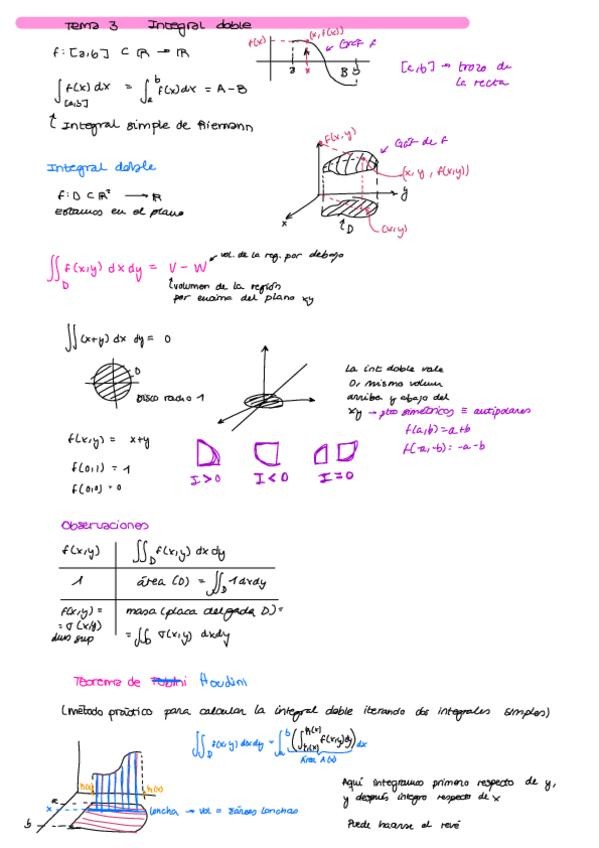 Tema 3 Integral doble
f: [a,b] ⊂ ℝ → ℝ
f(x) (x, f(x)) Gráf f
a x B b
[a,b] → trozo de la recta
∫[a,b] f(x) dx = ∫_a^b f(x) dx = A - B
Integral simple de Riemann
Integral doble
f: D ⊂ ℝ² → ℝ
estamos en el plano
f(x,y) Gráf de f
(x, y, f(x,y))
y
x D (x,y)
∬_D f(x,y) dx dy = V - W
vol. de la reg. por debajo
volumen de la región
por encima del plano xy
∬ (x+y) dx dy = 0
D
Disco radio 1
La int doble vale
0, mismo volum
arriba y abajo del
xy → pto simétricos ≡ antipolares
f(a,b) = a+b
f(-a,-b) = -a-b
f(x,y) = x+y
f(0,1) = 1
f(0,0) = 0
I>0 I<0 I=0
Observaciones
f(x,y) ∬_D f(x,y) dx dy
1 área (D) = ∬_D 1 dx dy
f(x,y) = masa (placa delgada D) =
= σ(x,y) = ∬_D σ(x,y) dx dy
dens sup
Teorema de Fubini Houdini
(método práctico para calcular la integral doble iterando dos integrales simples)
∬_D f(x,y) dx dy = ∫_a^b (∫_{h(x)}^{h(x)} f(x,y) dy) dx
Área A(x)
h(x) h(x)
a
x
b
loncha → vol = Σáreas lonchas
Aquí integramos primero respecto de y,
y después integro respecto de x
Puede hacerse al revé